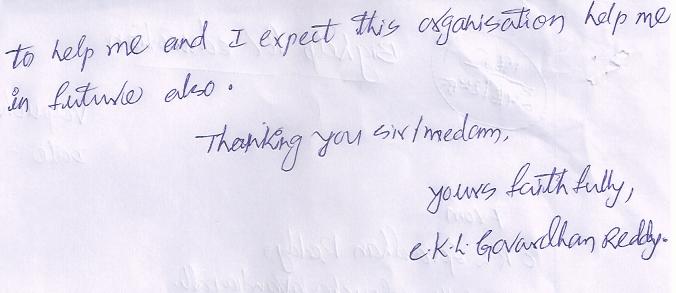 to help me and I expect this organisation help me
in future also.
Thanking you sir/medam,
yours faithfully,
C.K.L. Govardhan Reddy.